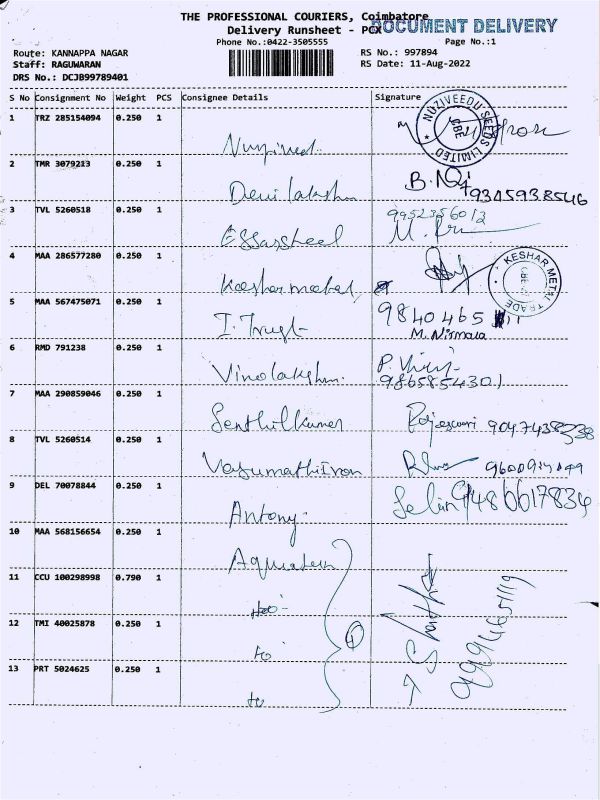 THE PROFESSIONAL COURIERS, Coimbatore
Delivery Runsheet - PCX
DOCUMENT DELIVERY
Phone No.:0422-3505555
Page No.:1
Route: KANNAPPA NAGAR
RS No.: 997894
Staff: RAGUWARAN
RS Date: 11-Aug-2022
DRS No.: DCJB99789401
S No Consignment No Weight PCS Consignee Details Signature
1 TRZ 285154094 0.250 1
NUZIVEEDU SEEDS LIMITED
CBE
2 TMR 3079213 0.250 1
Devi lakshm
9345938546
3 TVL 5260518 0.250 1
Essarsheel
9952356012
4 MAA 286577280 0.250 1
Keshar metal
KESHAR METAL TRADE
CBE
5 MAA 567475071 0.250 1
I. Trust
9840465
M. Nirmala
6 RMD 791238 0.250 1
Vinolakshm
9865854301
7 MAA 290859046 0.250 1
Senthilkumer
Rajeswari
8 TVL 5260514 0.250 1
Vasumathi
9 DEL 70078844 0.250 1
Antony
9486617834
10 MAA 568156654 0.250 1
11 CCU 100298998 0.790 1
12 TMI 40025878 0.250 1
to
4
13 PRT 5024625 0.250 1
to